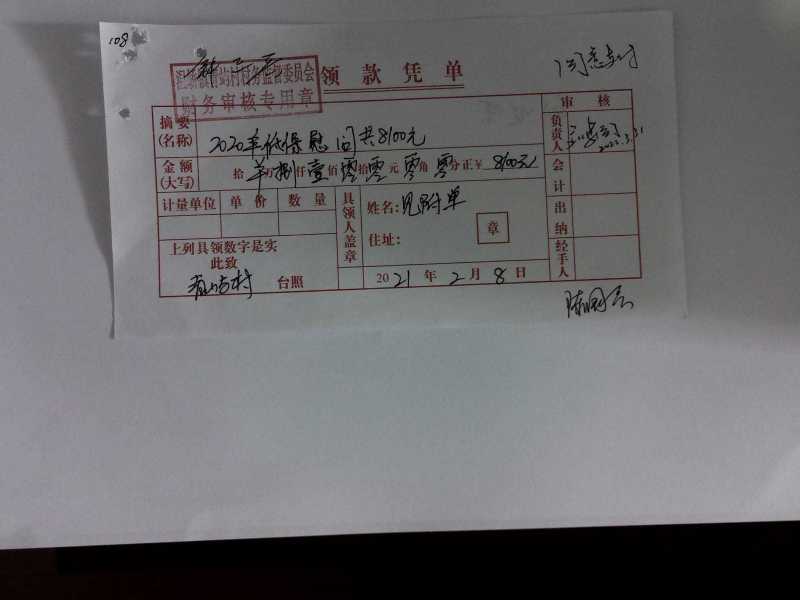 108
同意支付
村务监督委员会
财务审核专用章
领款凭单
摘要
(名称)
2020年低保慰问共8100元
审核
负责人
2022.3.31
金额
(大写)
拾 万捌仟壹佰零拾零元零角零分正¥ 8100元
会计
计量单位 单价 数量
具领人盖章
姓名:见附单
住址:
章
出纳
上列具领数字是实
此致
村 台照
2021年2月8日
经手人